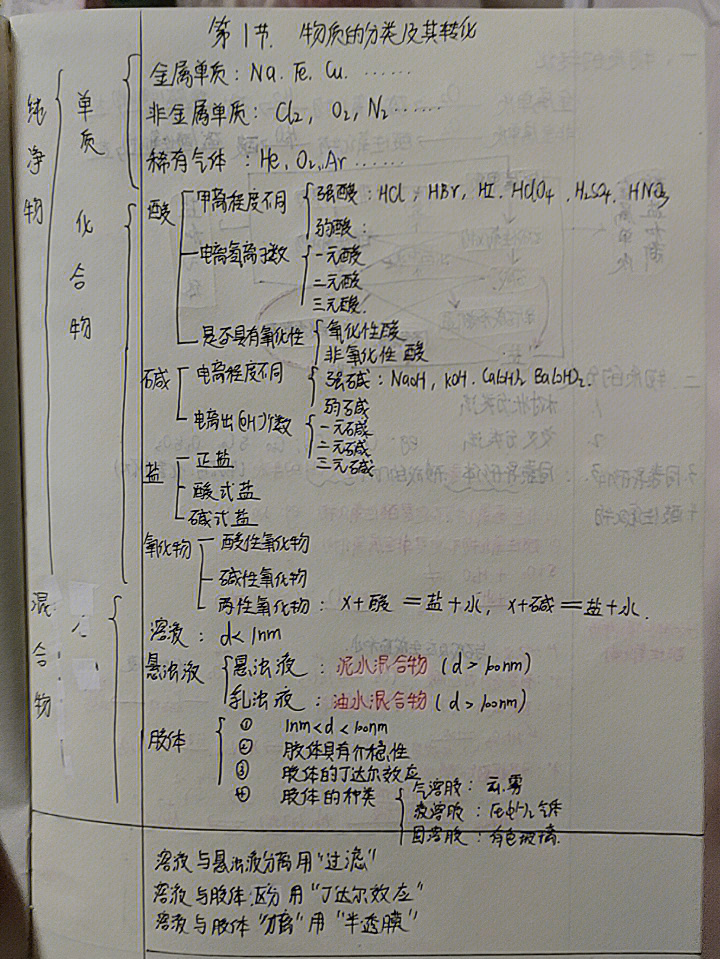 第1节 物质的分类及其转化
纯净物
单质
金属单质：Na. Fe. Cu. ……
非金属单质：Cl2, O2, N2 ……
稀有气体：He, O2, Ar ……
化合物
酸
电离程度不同
强酸：HCl, HBr, HI. HClO4, H2SO4, HNO3
弱酸：
电离氢离子数
一元酸
二元酸
三元酸.
是否具有氧化性
氧化性酸
非氧化性酸
碱
电离程度不同
强碱：NaOH, KOH. Ca(OH)2 Ba(OH)2
弱碱
电离出(OH⁻)个数
一元碱
二元碱
三元碱
盐
正盐
酸式盐
碱式盐
氧化物
酸性氧化物
碱性氧化物
两性氧化物：x+酸=盐+水, x+碱=盐+水.
混合物
溶液：d<1nm
悬浊液
悬浊液：泥水混合物(d>100nm)
乳浊液：油水混合物(d>100nm)
胶体
① 1nm<d<100nm
② 胶体具有介稳性
③ 胶体的丁达尔效应
④ 胶体的种类
气溶胶：云.雾
液溶胶：
固溶胶：有色玻璃.
溶液与悬浊液分离用"过滤"
溶液与胶体区分用"丁达尔效应"
溶液与胶体"分离"用"半透膜"